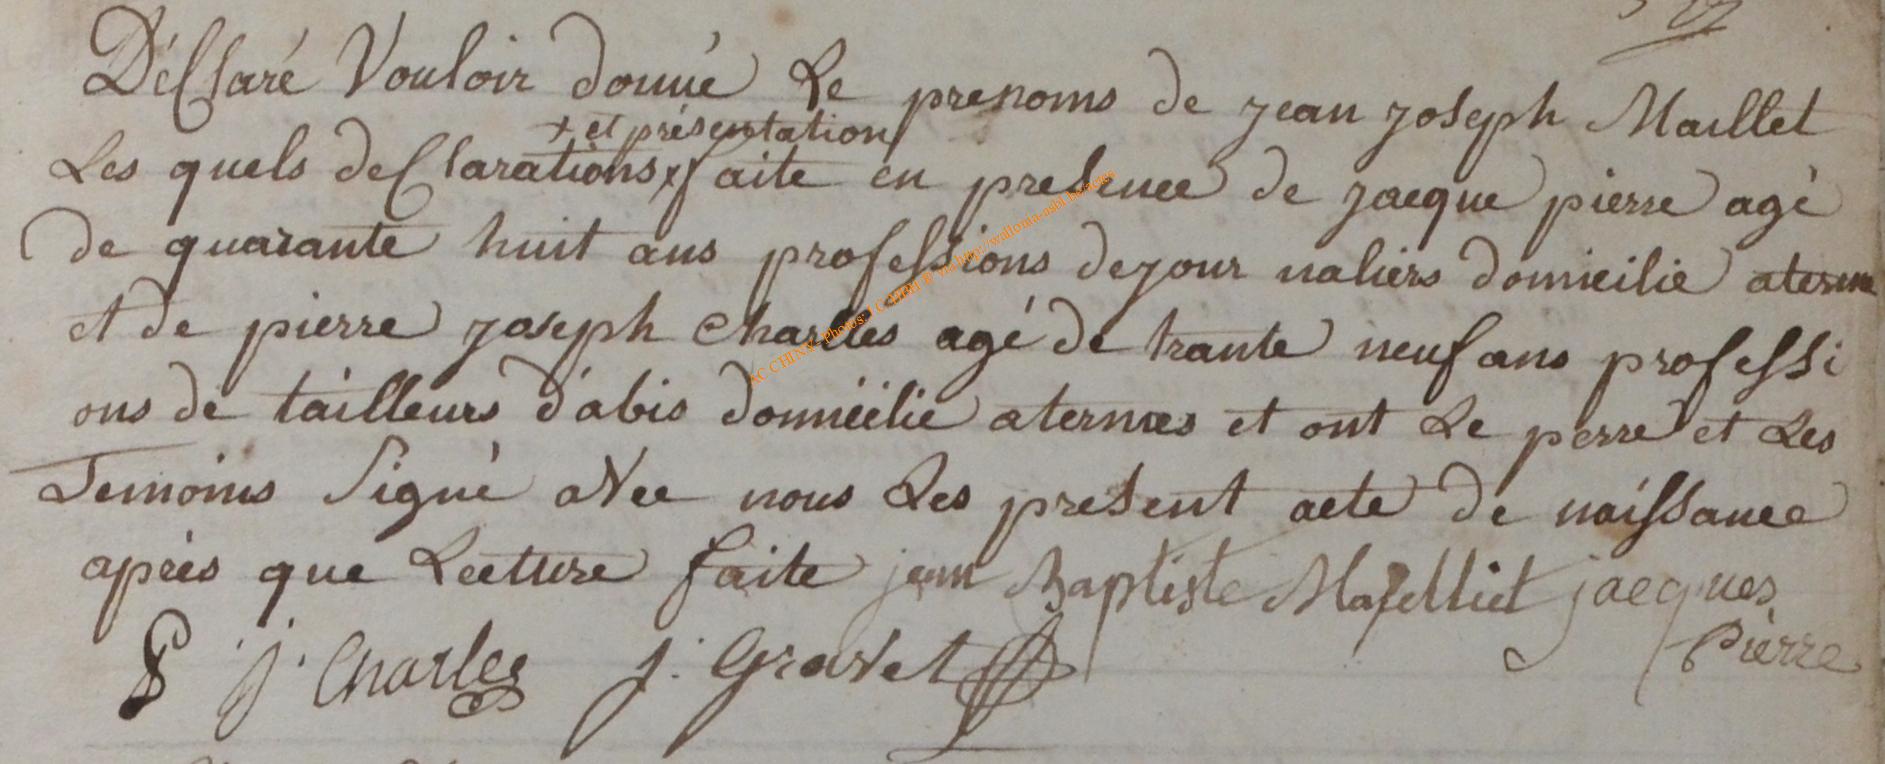 Déclaré Vouloir donné Le prenoms de jean joseph Maillet
+ et présentation
Les quels declarations x faite en presence de jacque pierre agé
de quarante huit ans professions dejour naliers domicilié aterme
et de pierre joseph Charles agé de trante neuf ans professi
ons de tailleurs d'abis domicilié atermes et ont Le perre et Les
Temoins Signé aVec nous Les present acte de naissance
après que Lecture faite jean Baptiste Jacques
Pierre
P j. Charles j. Gravet
AC CHINY - photos: J.C. via http://wallonia-asbl.be/actes